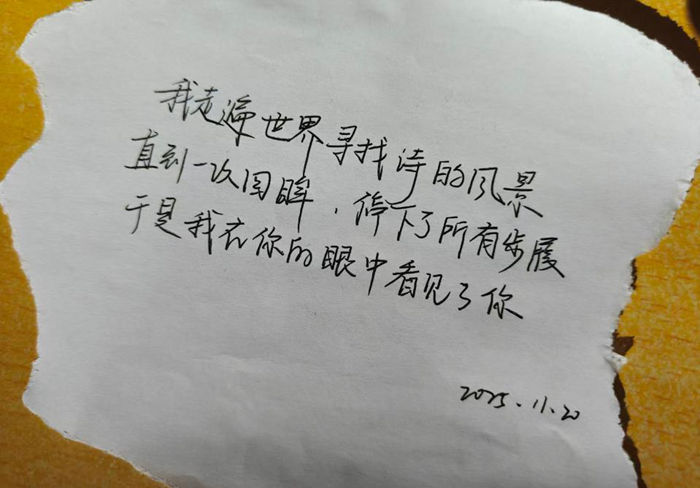 我走遍世界寻找诗的风景
直到一次回眸，停下了所有步履
于是我在你的眼中看见了你
2025.11.20